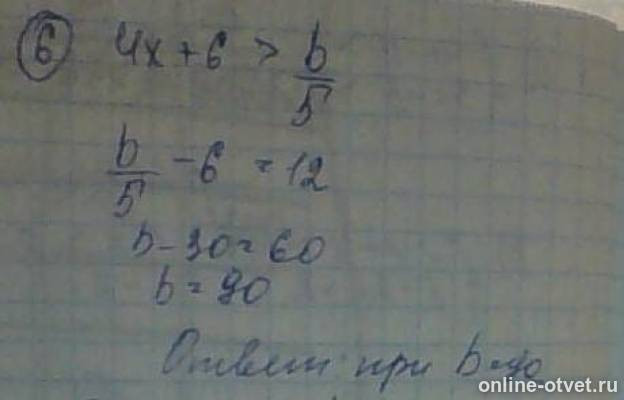 6 4x + 6 > b/5
b/5 - 6 = 12
b - 30 = 60
b = 90
Ответ при b = 90
online-otvet.ru